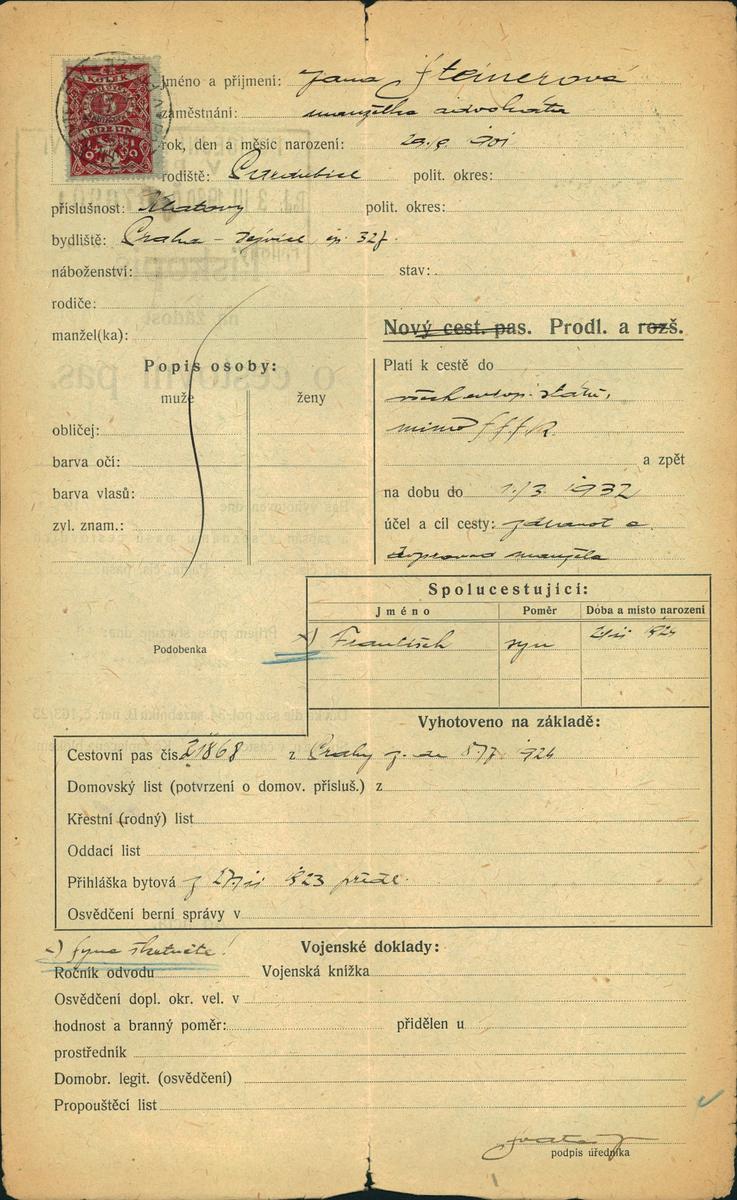 KOLEK
5
KORUN
Jméno a příjmení: Jana Steinerová
zaměstnání: manželka advokáta
rok, den a měsíc narození: 901
rodiště: Pardubice polit. okres:
příslušnost: Klatovy polit. okres:
bydliště: Praha - Dejvice čp. 327.
náboženství: stav:
rodiče:
manžel(ka):
Nový cest. pas. Prodl. a rozš.
Popis osoby:
muže ženy
obličej:
barva očí:
barva vlasů:
zvl. znam.:
Platí k cestě do
všech evrop. států,
mimo SSSR.
a zpět
na dobu do 1./3. 1932
účel a cíl cesty: zdravot a
doprovod manžela
Spolucestující:
Jméno Poměr Doba a místo narození
František syn
Podobenka
Vyhotoveno na základě:
Cestovní pas čís. 21868 z Prahy 924
Domovský list (potvrzení o domov. přísluš.) z
Křestní (rodný) list
Oddací list
Přihláška bytová z 923 předl.
Osvědčení berní správy v
syna škrtněte!
Vojenské doklady:
Ročník odvodu Vojenská knížka
Osvědčení dopl. okr. vel. v
hodnost a branný poměr: přidělen u
prostředník
Domobr. legit. (osvědčení)
Propouštěcí list
podpis úředníka